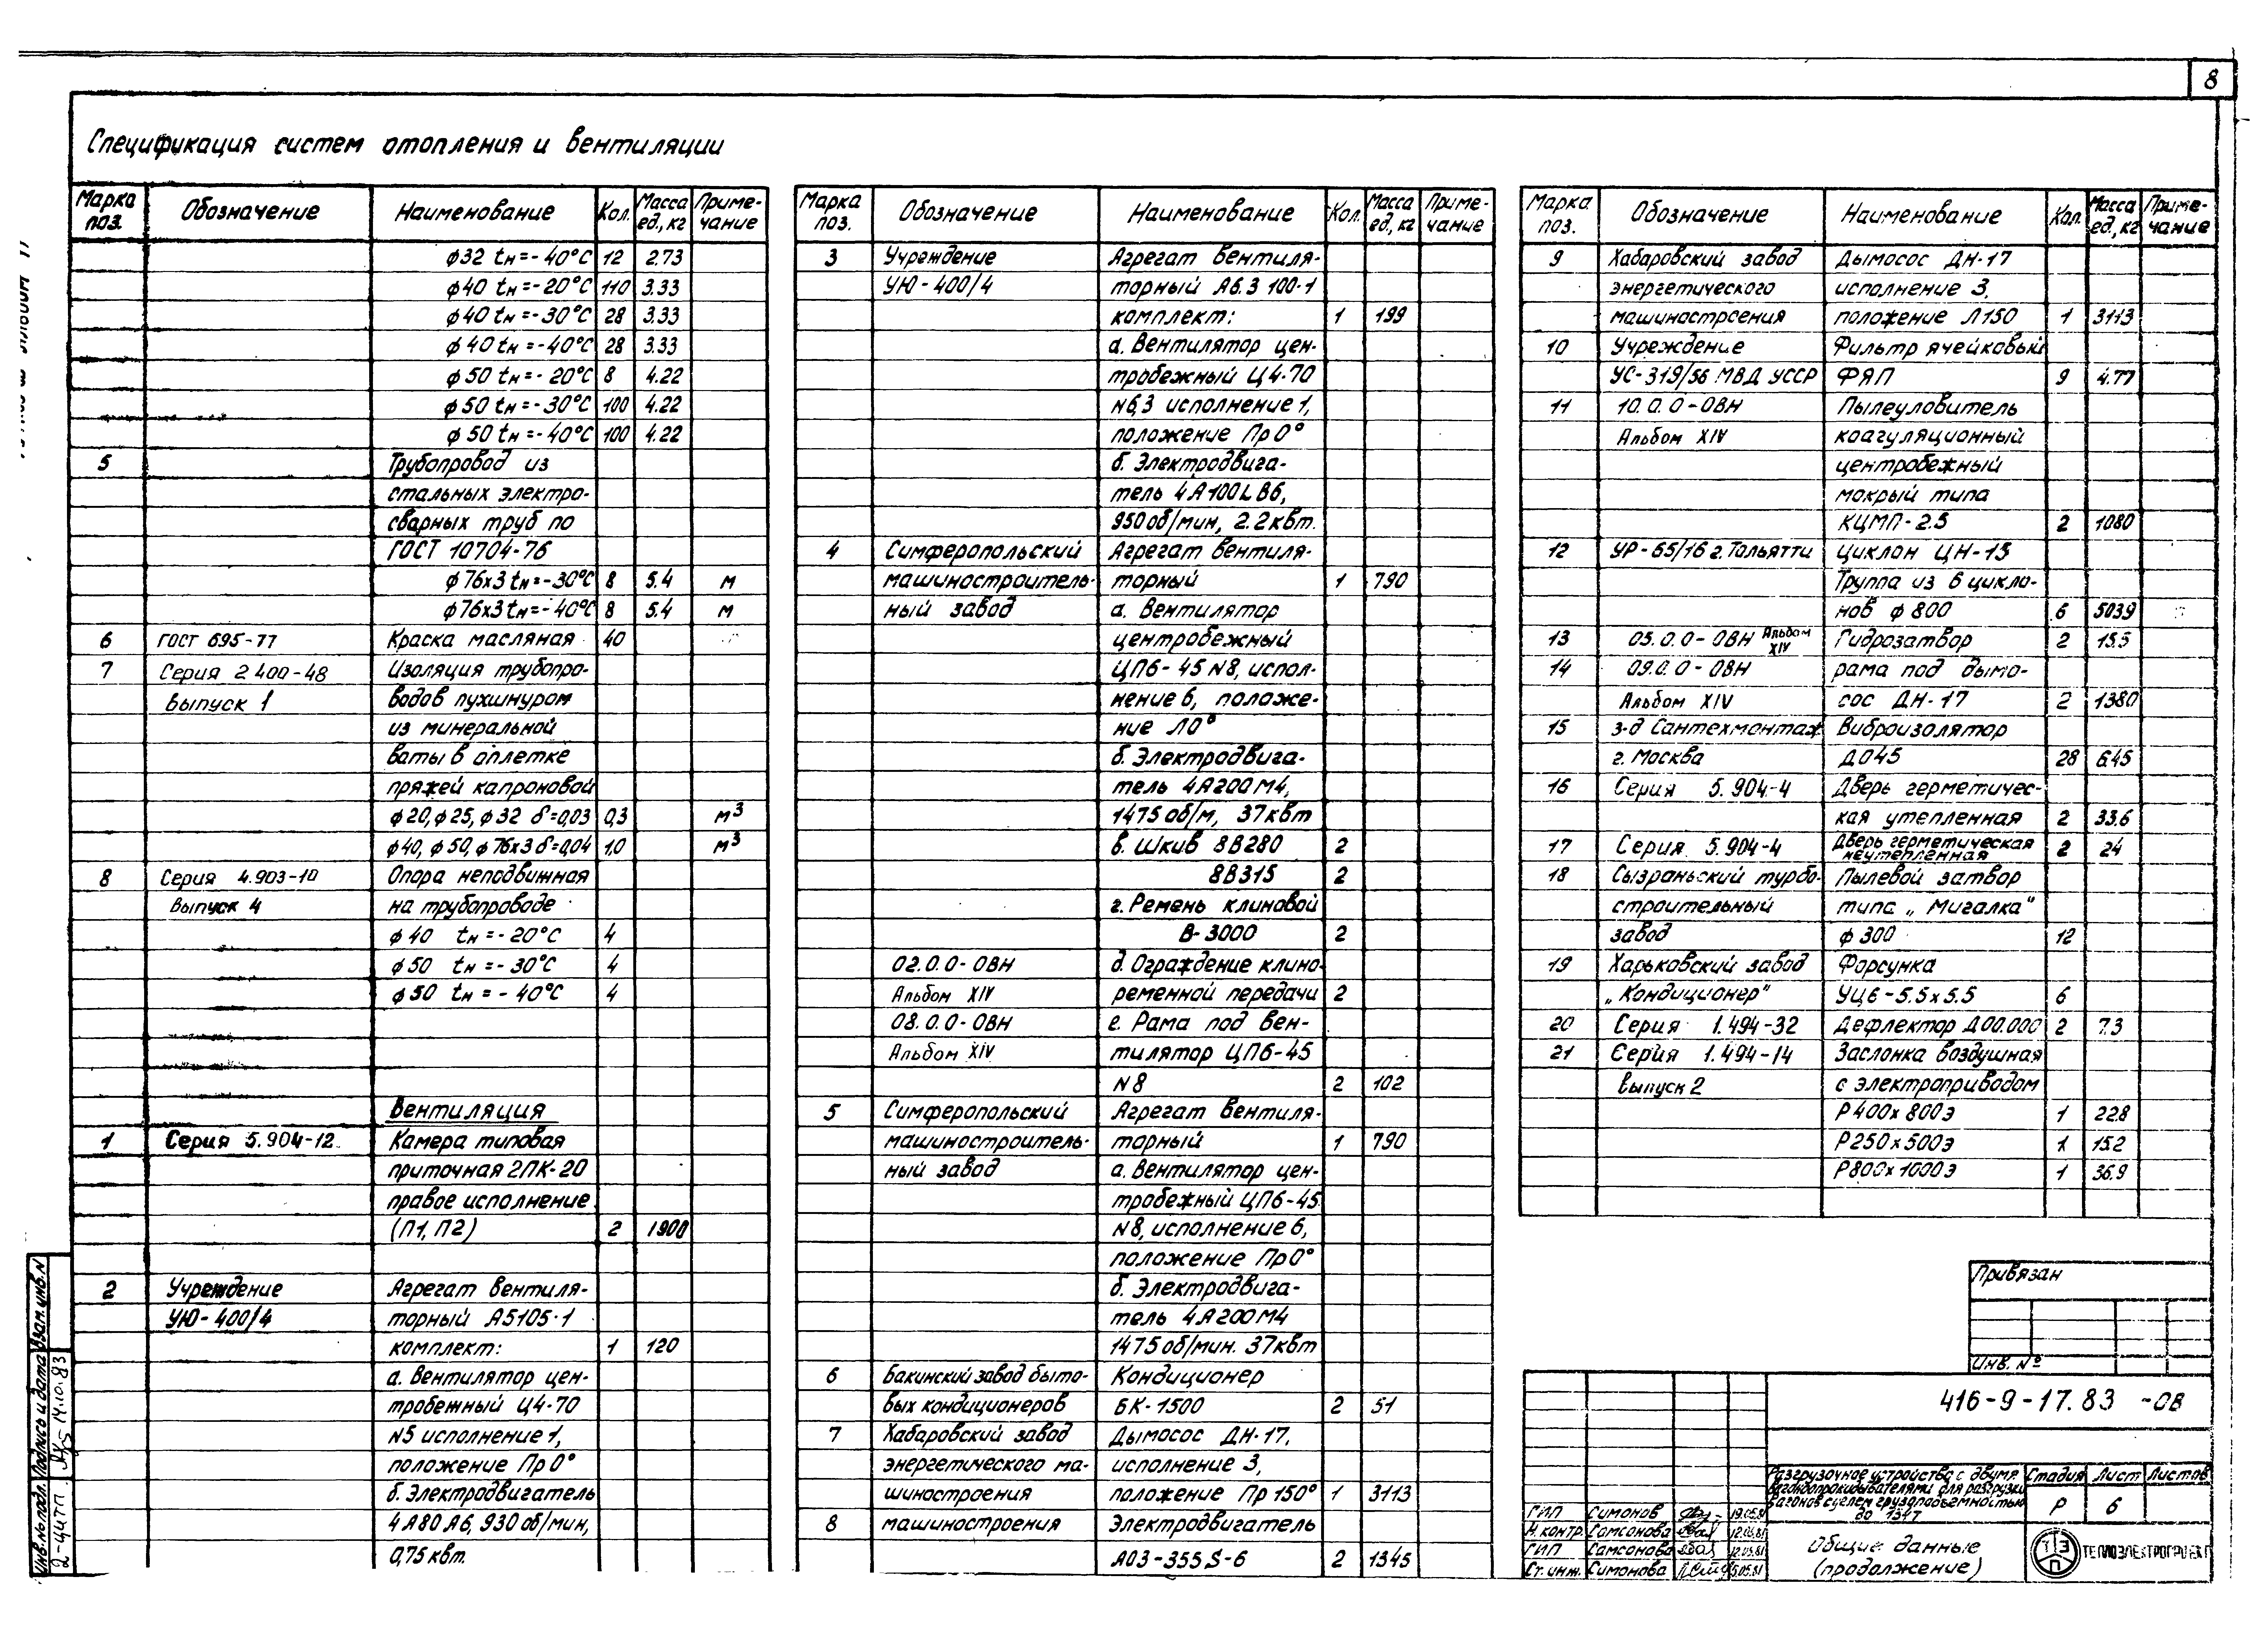 8
Спецификация систем отопления и вентиляции
Марка поз. Обозначение Наименование Кол. Масса ед., кг Примечание
ф32 tн=-40°С 12 2.73
ф40 tн=-20°С 110 3.33
ф40 tн=-30°С 28 3.33
ф40 tн=-40°С 28 3.33
ф50 tн=-20°С 8 4.22
ф50 tн=-30°С 100 4.22
ф50 tн=-40°С 100 4.22
5 Трубопровод из
стальных электро-
сварных труб по
ГОСТ 10704-76
ф76х3 tн=-30°С 8 5.4 м
ф76х3 tн=-40°С 8 5.4 м
6 ГОСТ 695-77 Краска масляная 40
7 Серия 2400-48 Изоляция трубопро-
выпуск 1 водов пухшнуром
из минеральной
ваты в оплетке
пряжей капроновой
ф20, ф25, ф32 δ=0,03 0,3 м³
ф40, ф50, ф76х3 δ=0,04 1,0 м³
8 Серия 4.903-10 Опора неподвижная
Выпуск 4 на трубопроводе
ф40 tн=-20°С 4
ф50 tн=-30°С 4
ф50 tн=-40°С 4
Вентиляция
1 Серия 5.904-12 Камера типовая
приточная 2ПК-20
правое исполнение
(П1, П2) 2 1900
2 Учреждение Агрегат вентиля-
УЮ-400/4 торный А5105-1
комплект: 1 120
а. Вентилятор цен-
тробежный Ц4-70
N5 исполнение 1,
положение Пр0°
б. Электродвигатель
4А80А6, 930 об/мин,
0,75 квт.
Марка поз. Обозначение Наименование Кол. Масса ед., кг Приме-чание
3 Учреждение Агрегат вентиля-
УЮ-400/4 торный А6.3 100-1
комплект: 1 199
а. Вентилятор цен-
тробежный Ц4-70
N6,3 исполнение 1,
положение Пр0°
б. Электродвига-
тель 4А100LВ6,
950 об/мин, 2.2 квт.
4 Симферопольский Агрегат вентиля-
машиностроитель- торный 1 790
ный завод а. Вентилятор
центробежный
ЦП6-45 N8, испол-
нение 6, положе-
ние Л0°
б. Электродвига-
тель 4А200М4,
1475 об/м, 37 квт
в. Шкив 8В280 2
8В315 2
г. Ремень клиновой
В-3000 2
02.0.0-ОВН д. Ограждение клино-
Альбом XIV ременной передачи 2
08.0.0-ОВН е. Рама под вен-
Альбом XIV тилятор ЦП6-45
N8 2 102
5 Симферопольский Агрегат вентиля-
машиностроитель- торный 1 790
ный завод а. Вентилятор цен-
тробежный ЦП6-45
N8, исполнение 6,
положение Пр0°
б. Электродвига-
тель 4А200М4
1475 об/мин. 37 квт
6 Бакинский завод быто- Кондиционер
вых кондиционеров БК-1500 2 51
7 Хабаровский завод Дымосос ДН-17,
энергетического ма- исполнение 3,
шиностроения положение Пр 150° 1 3113
8 машиностроения Электродвигатель
А03-355S-6 2 1345
Марка поз. Обозначение Наименование Кол. Масса ед., кг Приме-чание
9 Хабаровский завод Дымосос ДН-17
энергетического исполнение 3,
машиностроения положение Л150 1 3113
10 Учреждение Фильтр ячейковый
УС-319/56 МВД УССР ФЯП 9 4.77
11 10.0.0-ОВН Пылеуловитель
Альбом XIV коагуляционный
центробежный
мокрый типа
КЦМП-2.5 2 1080
12 УР-65/16 г. Тольятти Циклон ЦН-15
Группа из 6 цикло-
нов ф800 6 5039
13 05.0.0-ОВН Альбом XIV Гидрозатвор 2 15.5
14 09.0.0-ОВН рама под дымо-
Альбом XIV сос ДН-17 2 1380
15 з-д Сантехмонтаж Виброизолятор
г. Москва Д045 28 6.45
16 Серия 5.904-4 Дверь герметичес-
кая утепленная 2 33.6
17 Серия 5.904-4 Дверь герметическая неутепленная 2 24
18 Сызраньский турбо- Пылевой затвор
строительный типа „Мигалка"
завод ф300 12
19 Харьковский завод Форсунка
„Кондиционер" УЦ6-5.5х5.5 6
20 Серия 1.494-32 Дефлектор Д00.000 2 7.3
21 Серия 1.494-14 Заслонка воздушная
выпуск 2 с электроприводом
Р400х800э 1 22.8
Р250х500э 1 15.2
Р800х1000э 1 36.9
Привязан
Инв. №
416-9-17.83 -ОВ
Разгрузочное устройства с двумя
вагоноопрокидывателями для разгрузки
вагонов с углем грузоподъемностью
до 134т
Стадия Лист Листов
Р 6
ГИП Симонов 19.05.81
Н. контр. Самсонова 12.05.81
ГИП Самсонова 12.05.81
Ст. инж. Симонова 5.05.81
Общие данные
(продолжение)
ТЭП
ТЕПЛОЭЛЕКТРОПРОЕКТ
Инв. № подл. Подпись и дата Взам. инв. N
14.10.83